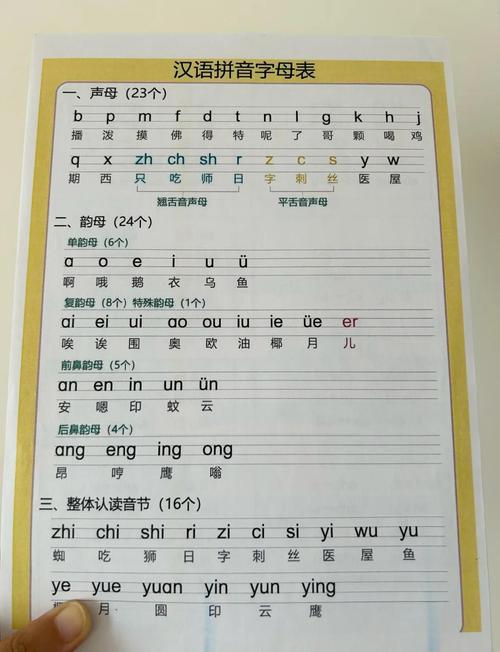 汉语拼音字母表
一、声母（23个）
b p m f d t n l g k h j
播 泼 摸 佛 得 特 呢 了 哥 颗 喝 鸡
q x zh ch sh r z c s y w
期 西 只 吃 师 日 字 刺 丝 医 屋
翘舌音声母 平舌音声母
二、韵母（24个）
单韵母（6个）
a o e i u ü
啊 哦 鹅 衣 乌 鱼
复韵母（8个）特殊韵母（1个）
ai ei ui ao ou iu ie üe er
唉 诶 围 奥 欧 油 椰 月 儿
前鼻韵母（5个）
an en in un ün
安 嗯 印 蚊 云
后鼻韵母（4个）
ang eng ing ong
昂 哼 鹰 嗡
三、整体认读音节（16个）
zhi chi shi ri zi ci si yi wu yu
蜘 吃 狮 日 字 刺 丝 医 屋 鱼
ye yue yuan yin yun ying
月 圆 印 云 鹰